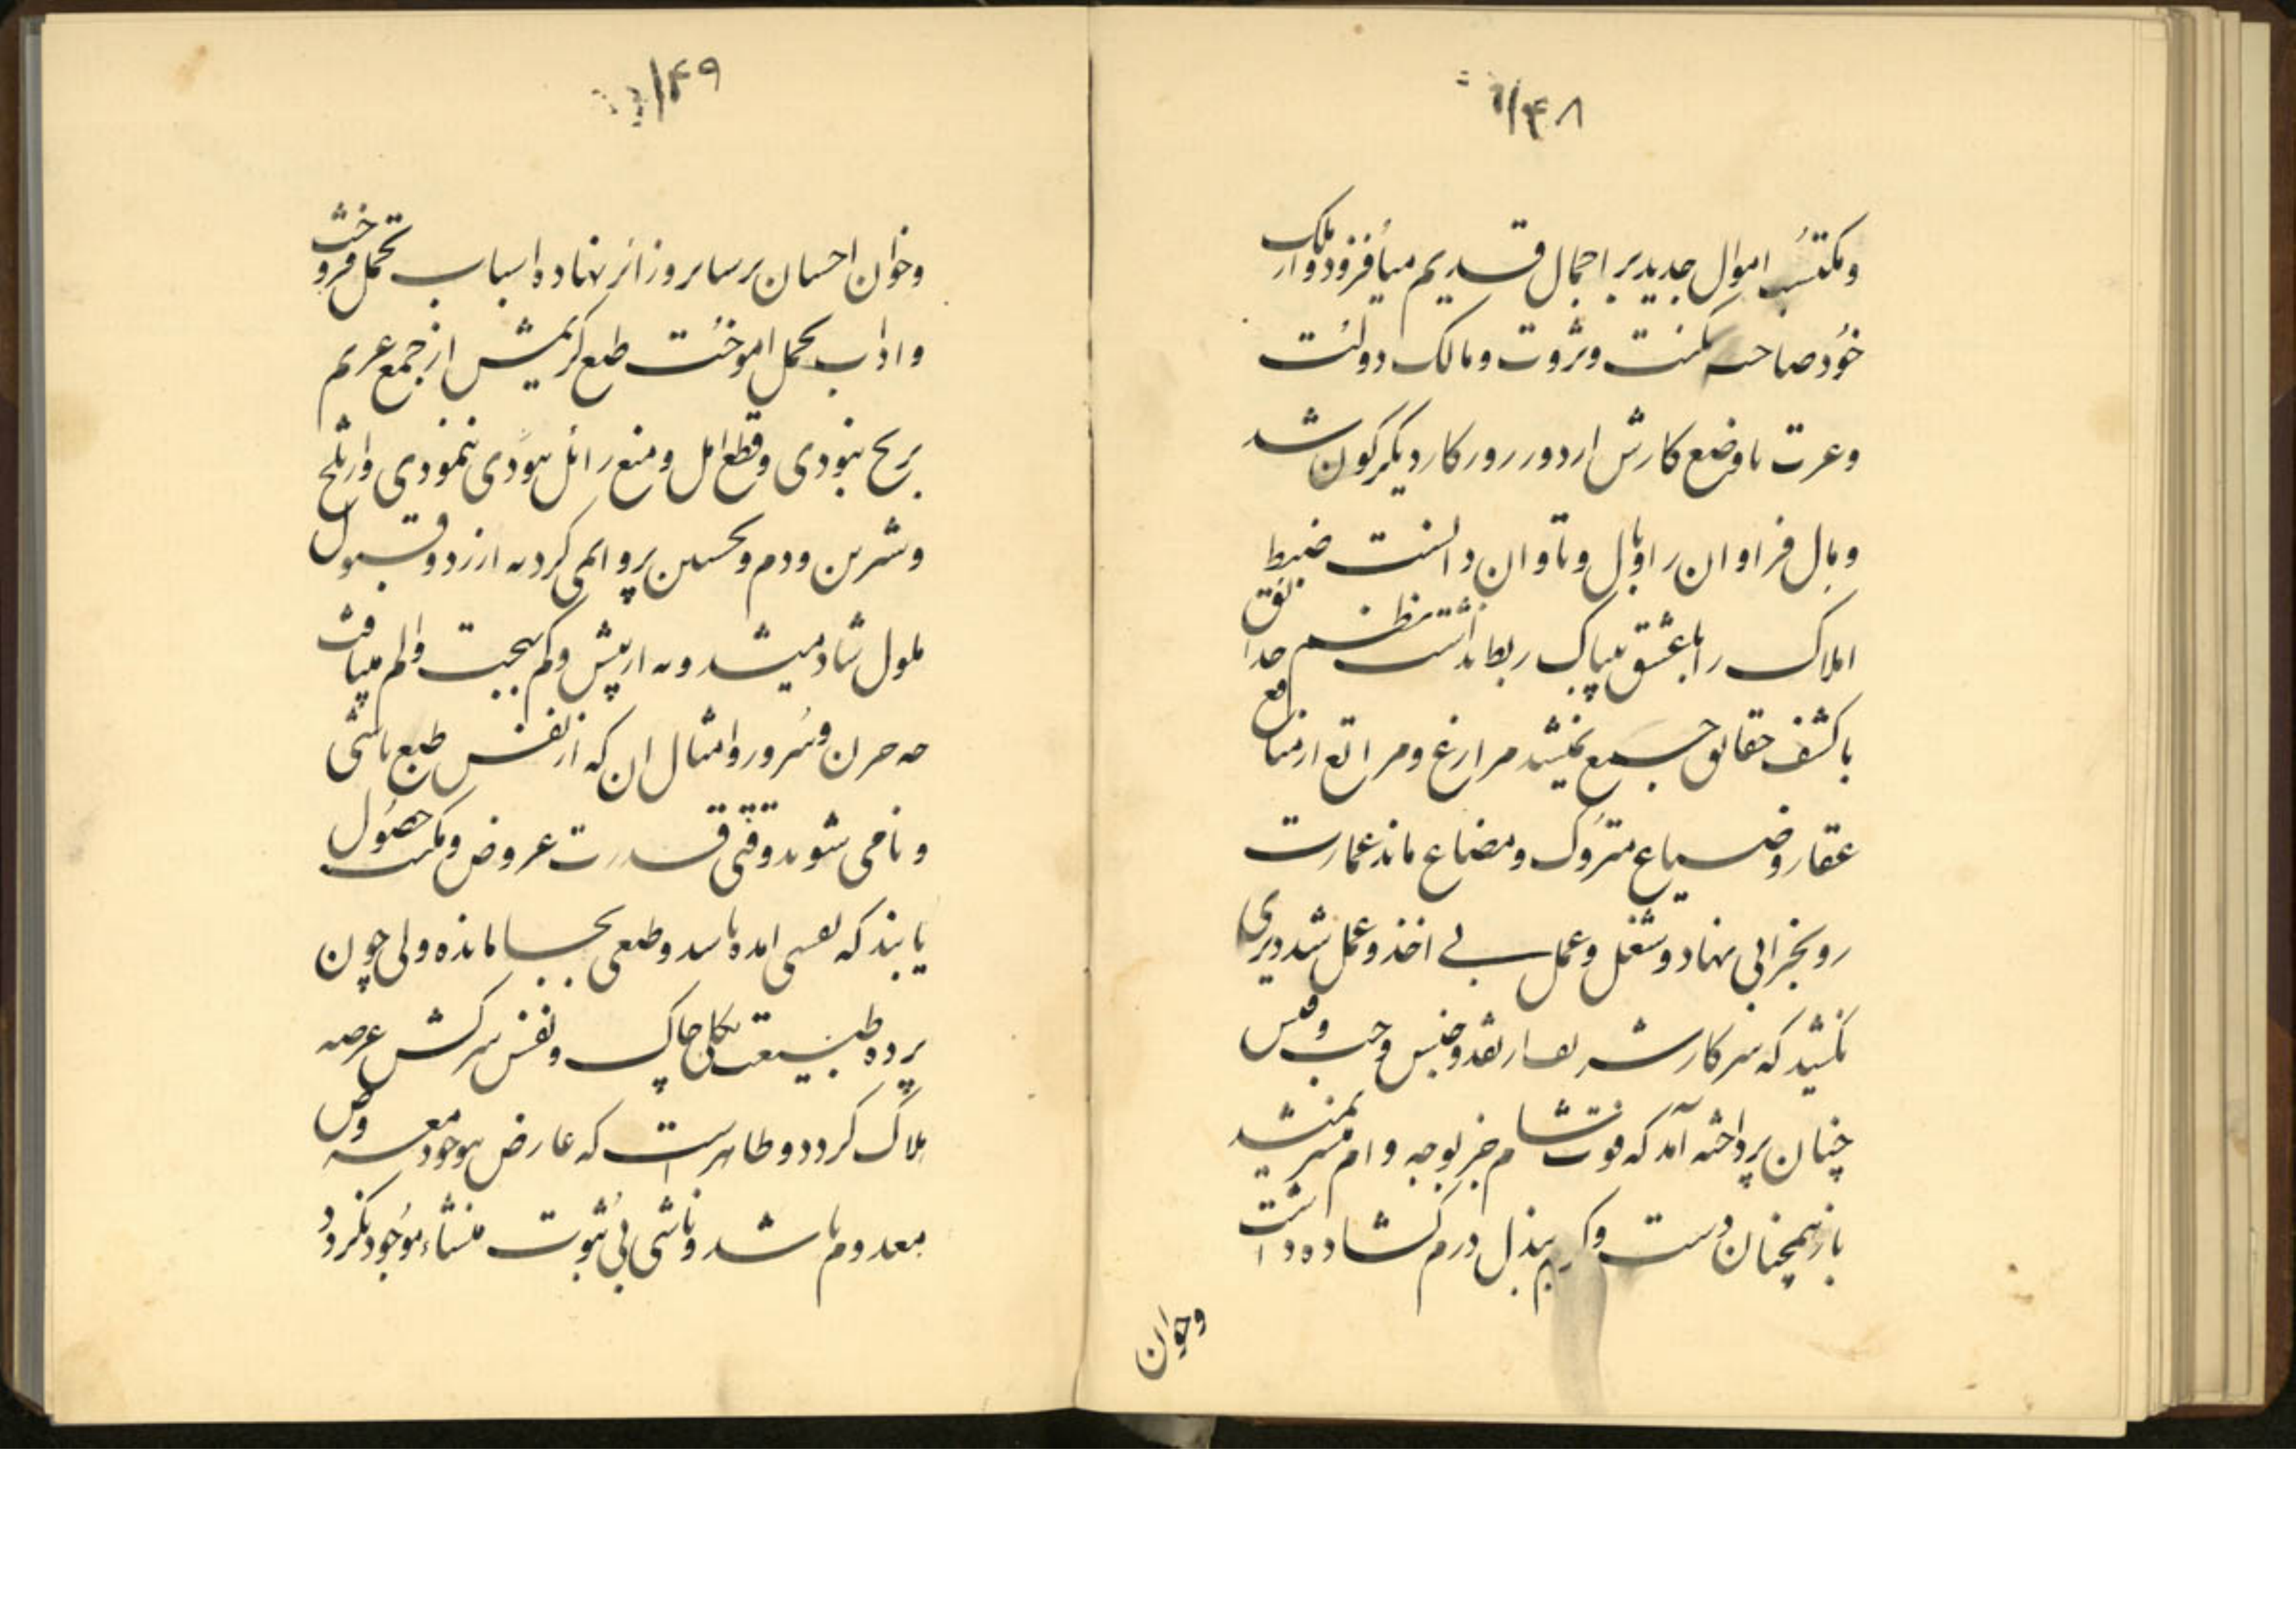 ۱۴۸
ومکتسب اموال جدید بر اجمال قدیم میافزود واز ملک
خود صاحب مکنت وثروت ومالک دولت
وعزت تا وضع کارش از دور روزکار دیکرکون شد
ومال فراوان را وبال وتاوان دانست ضبط
املاک را با عشق بیباک ربط نداشت نظم حدائق
با کشف حقایق جمع نمیشد مزارع ومراتع از منافع
عقار وضیاع متروک ومضاع ماند عمارت
رو بخرابی نهاد وشغل وعمل بی اخذ وعمل شد دیری
نکشید که سرکارش از نقد وجنس وحب وفلس
چنان پرداخته آمد که قوت شام جز بوجه وام میسر نمیشد
باز همچنان دست وکریم ببذل درم کشاده داشت
وخوان
۱۴۹
وخوان احسان بر سایر وزائر نهاده اسباب تجمل فروخت
واداب تحمل اموخت طبع کریمش از جمع غریم
برنج نبودی وقطع امل ومنع ننمودی واز تلخ
وشیرین وذم وتحسین پروا نمی کرد نه از رد وقبول
ملول شاد میشد ونه از بیش وکم بهجت والم مییافت
چه حزن وسرور وامثال ان که از نفس طبع ناشی
ونامی شوند وقتی قدرت عروض ومکنت حصول
یابند که نفسی امده باشد وطبعی بجا مانده ولی چون
پرده طبیعت بکلی چاک ونفس سرکش عرصه
هلاک کردد وظاهرست که عارض بوجود معروض
معدوم باشد وناشی بی ثبوت منشاء موجود نکردد